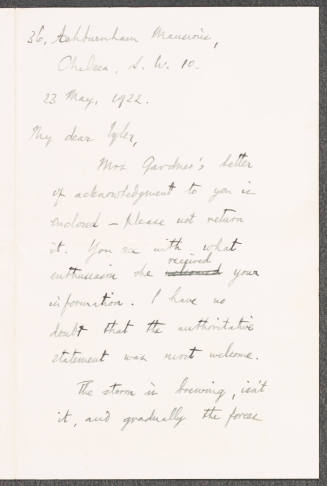 36, Ashburnham Mansions,
Chelsea, S. W. 10.
23 May, 1922.
My dear Tyler,
Mrs Gardner's letter
of acknowledgment to you is
enclosed – please not return
it. You see with what
enthusiasm she received your
information. I have no
doubt that the authoritative
statement was most welcome.
The storm is brewing, isn't
it, and gradually the forces